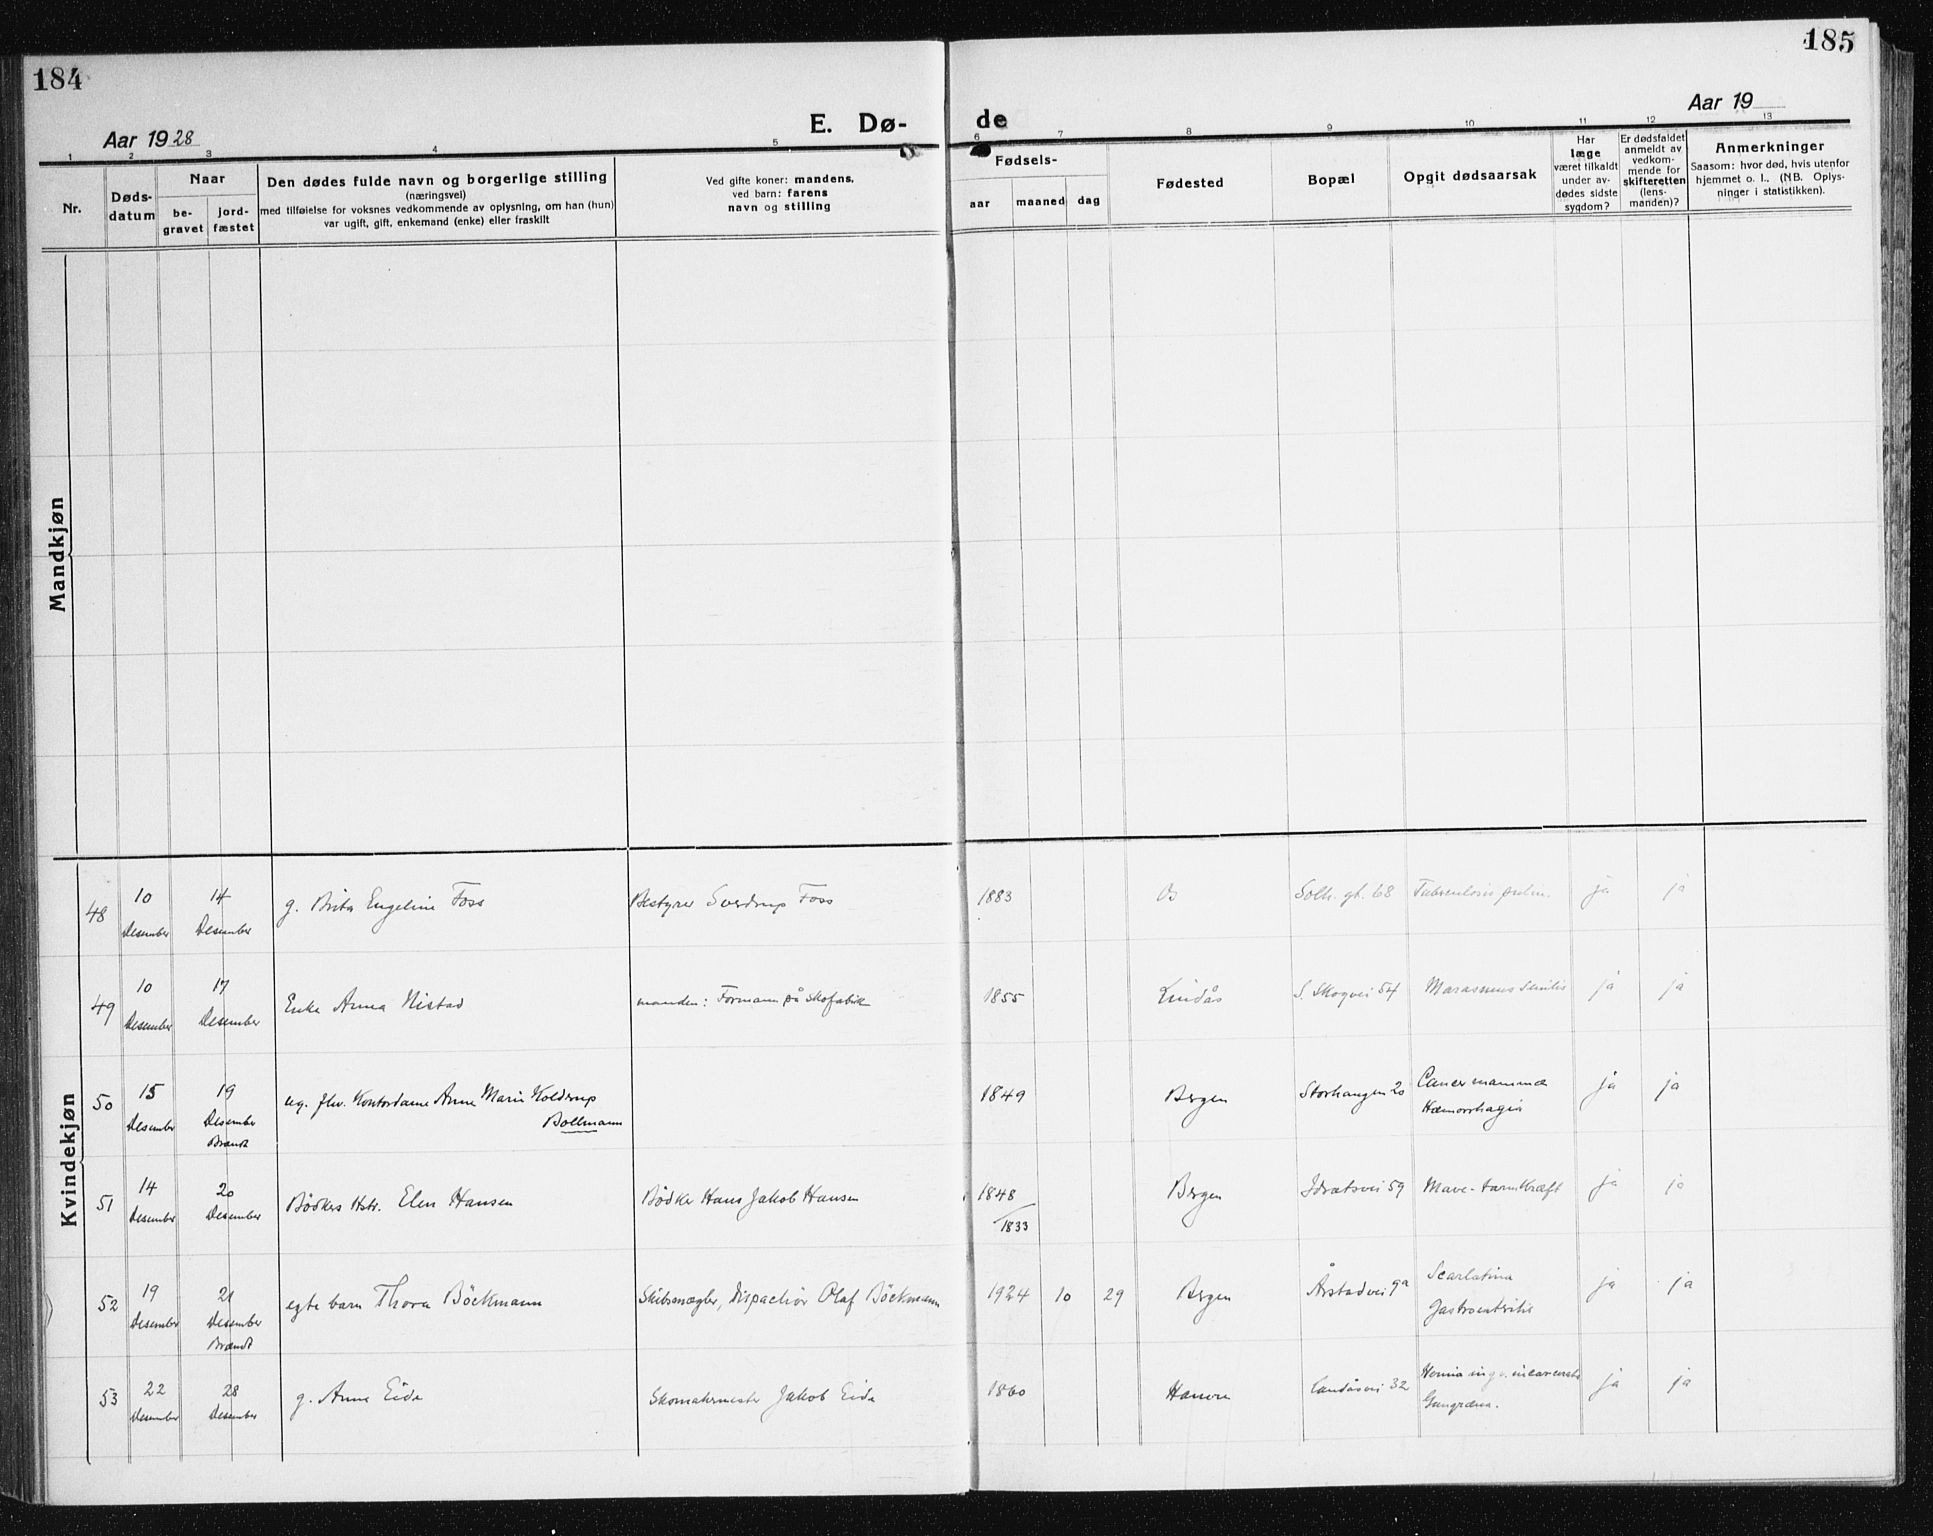 184
185
Aar 1928
E. Dø-
de
Aar 19
1 2 3 4 5 6 7 8 9 10 11 12 13
Nr.
Døds-
datum
Naar
be-
gravet
jord-
fæstet
Den dødes fulde navn og borgerlige stilling
(næringsvei)
med tilføielse for voksnes vedkommende av oplysning, om han (hun)
var ugift, gift, enkemand (enke) eller fraskilt
Ved gifte koner: mandens,
ved barn: farens
navn og stilling
Fødsels-
aar maaned dag
Fødested
Bopæl
Opgit dødsaarsak
Har
læge
været tilkaldt
under av-
dødes sidste
sygdom?
Er dødsfaldet
anmeldt av
vedkom-
mende for
skifteretten
(lens-
manden)?
Anmerkninger
Saasom: hvor død, hvis utenfor
hjemmet o. l., (NB. Oplys-
ninger i statistikken).
Mandkjøn
Kvindekjøn
48 10 Desember 14 Desember g. Brita Engeline Foss Bestyrer Sverdrup Foss 1883 B Solh. gt. 68 Tuberculosis pulm. ja ja
49 10 Desember 17 Desember Enke Anna Nistad manden: Formann på skofabrik 1855 Lindås S. Skogvei 54 Marasmus senilis ja ja
50 15 Desember 19 Desember Brandt ug. fhv. Kontordame Anne Marie Kolderup
Bollmann 1849 Bergen Storhaugen 20 Cancer mammæ
Hæmorrhagia ja ja
51 14 Desember 20 Desember Bödkers Hstr. Elen Hansen Bödker Hans Jakob Hansen 1848
/1833 Bergen Idrætsvei 59 Mave-tarmkræft ja ja
52 19 Desember 21 Desember Brandt egte barn Thora Böckmann Skibsmægler, Dispachör Olaf Böckmann 1924 10 29 Bergen Årstadvei 9a Scarlatina
Gastroenteritis ja ja
53 22 Desember 28 Desember g. Anna Eide Skomakermester Jakob Eide 1860 Hamre Landåsvei 32 Hernia ing. incarcerata
Gangræna. ja ja